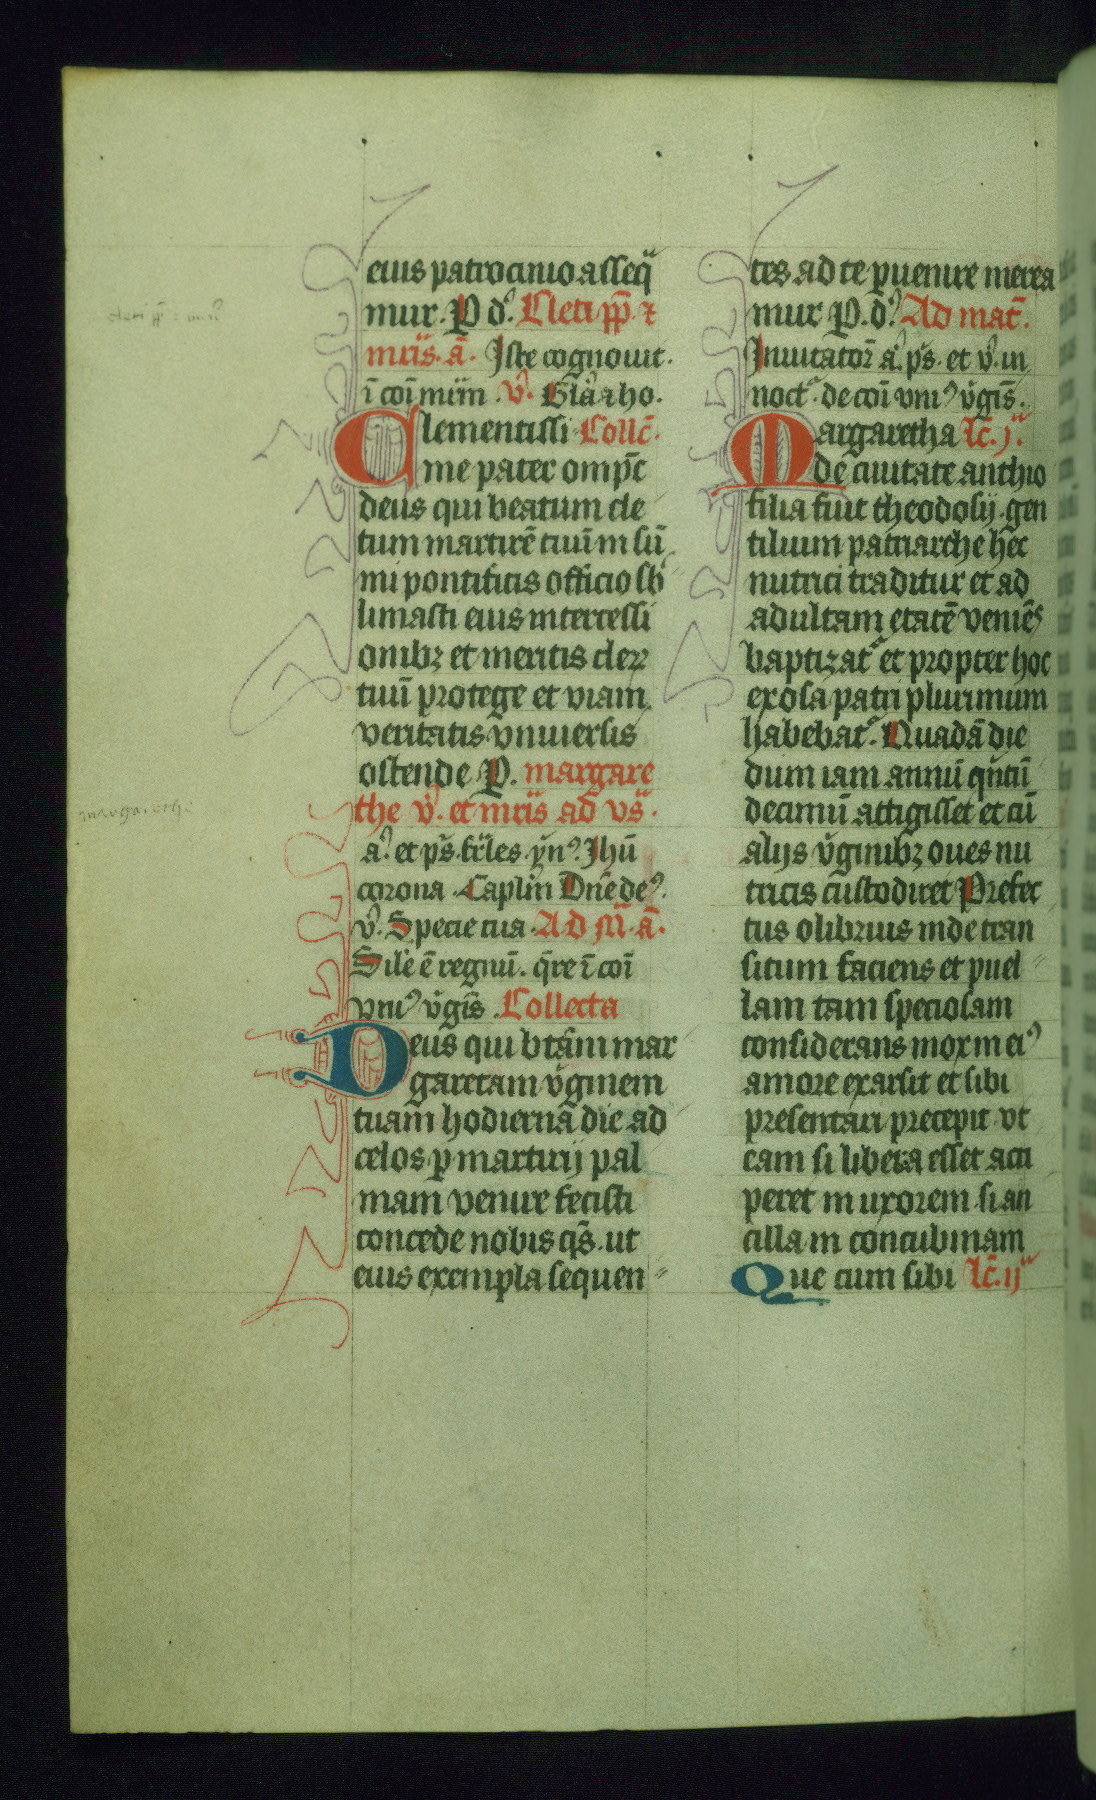 eius patrocinio asseq̄
mur. P d.ꝰ Cleti pp̄. ⁊
mr̄is. ā. Iste cognouit.
ī com̄mūn. v̓. Gl̓a ⁊ ho.
Clementissi Collc̄.
me pater omp̄c
deus qui beatum cle
tum martirē tuū in sū
mi pontificis officio sb̓
limasti eius intercessi
onibꝫ et meritis cleꝝ
tuū protege et viam
veritatis vniuersis
ostende P. margare
the v̓. et mr̄is ad vs̄.
a.̓ et p̄s. fr̄les. yn̄ꝰ. Ihū
corona. Capl̄m Dn̄e deꝰ.
v̓. Specie tua. Ad M̄. ā.
Sil̓e ē regnū. q̄re ī coī
vniꝰ v̓gīs. Collecta
Deus qui btām mar
garetam v̓ginem
tuam hodiernā die ad
celos p̱ martirij pal
mam venire fecisti
concede nobis qs̄. ut
eius exempla sequen
tes ad te p̱uenire merea
mur P. d.ꝰ Ad mat̄.
Inuitator̄ a.̓ p̄s. et v̓. in
noct̄. de coī vniꝰ v̓gīs.
Margaretha lc̄. j.ᵃ
de ciuitate anthio
filia fuit theodosij. gen
tilium patriarche hec
nutrici traditur et ad
adultam etatē veniēs
baptizatᵃ et propter hoc
exosa patri plurimum
habebatᵃ. Quadā die
dum iam annū qn̄tū
decimū attigisset et cū
alijs v̓ginibꝫ oues nu
tricis custodiret Prefec
tus olibrius inde tran
situm faciens et puel
lam tam speciosam
considerans mox in eiꝰ
amore exarsit et sibi
presentari precepit vt
eam si libera esset acci
peret in uxorem. si an
cilla in concubinam
Que cum sibi lc̄. ijᵃ
cleti pp̄ : mr̄ꝰ
margarethe